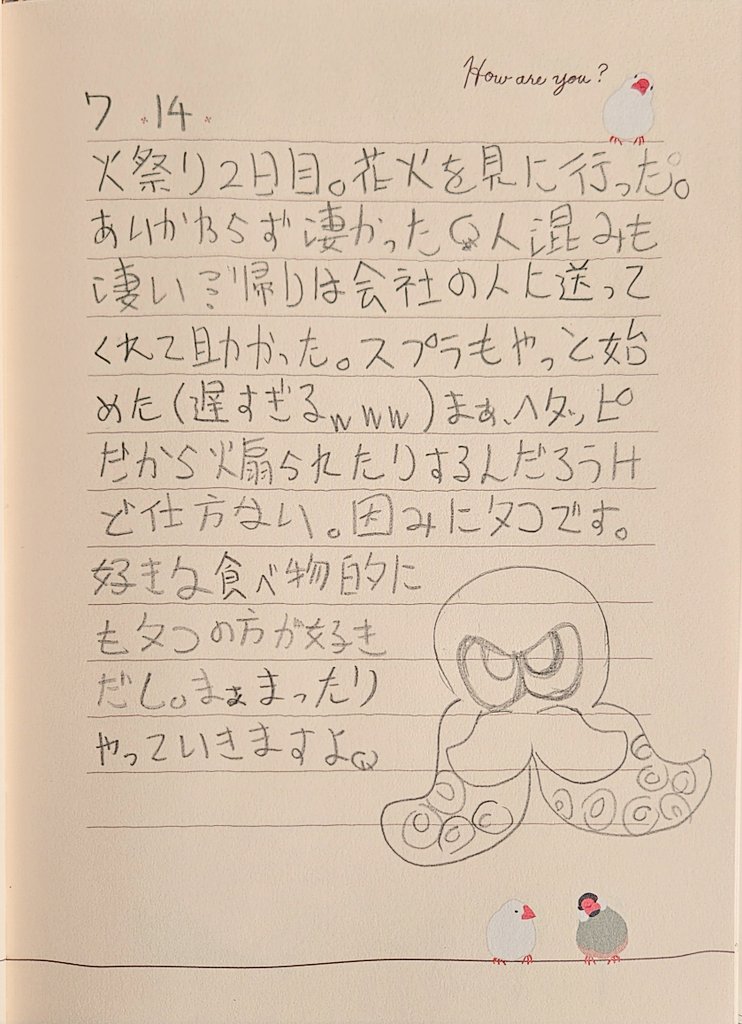 How are you?
7 14
火祭り2日目。花火を見に行った。
あいかわらず凄かった。人混みも
凄い。帰りは会社の人に送って
くれて助かった。スプラもやっと始
めた(遅すぎるwww)まぁ、ヘタッピ
だから煽られたりするんだろうけ
ど仕方ない。因みにタコです。
好きな食べ物的に
もタコの方が好き
だし。まぁまったり
やっていきますよ。